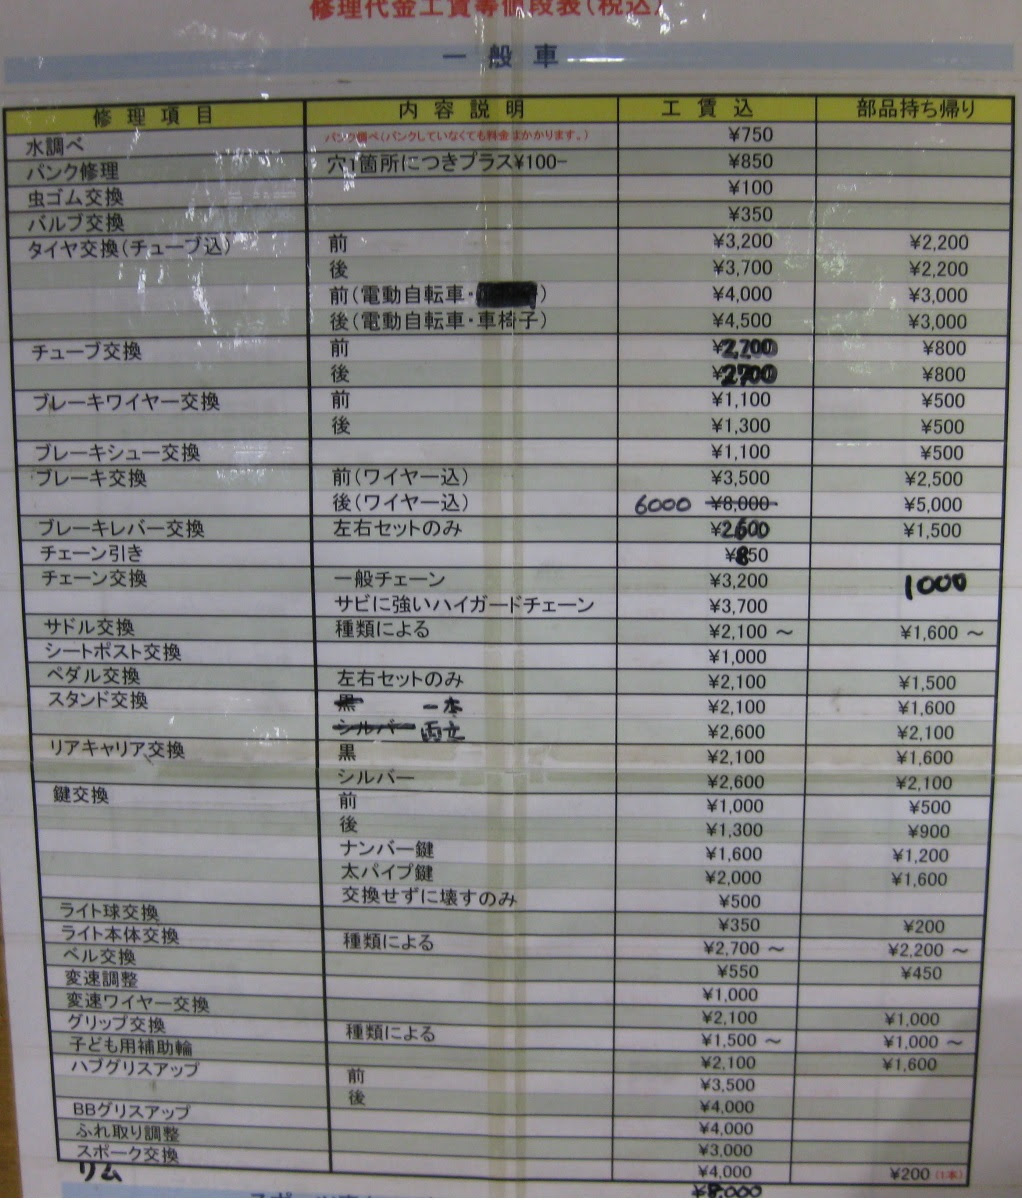 修理代金工賃等値段表(税込)
一般車
修理項目 内容説明 工賃込 部品持ち帰り
水調べ パンク調べ(パンクしていなくても料金はかかります。) ¥750
パンク修理 穴1箇所につきプラス¥100- ¥850
虫ゴム交換 ¥100
バルブ交換 ¥350
タイヤ交換(チューブ込) 前 ¥3,200 ¥2,200
後 ¥3,700 ¥2,200
前(電動自転車・) ¥4,000 ¥3,000
後(電動自転車・車椅子) ¥4,500 ¥3,000
チューブ交換 前 ¥2,700 ¥800
後 ¥2700 ¥800
ブレーキワイヤー交換 前 ¥1,100 ¥500
後 ¥1,300 ¥500
ブレーキシュー交換 ¥1,100 ¥500
ブレーキ交換 前(ワイヤー込) ¥3,500 ¥2,500
後(ワイヤー込) 6000 ¥8,000 ¥5,000
ブレーキレバー交換 左右セットのみ ¥2600 ¥1,500
チェーン引き ¥850
チェーン交換 一般チェーン ¥3,200 1000
サビに強いハイガードチェーン ¥3,700
サドル交換 種類による ¥2,100 ～ ¥1,600 ～
シートポスト交換 ¥1,000
ペダル交換 左右セットのみ ¥2,100 ¥1,500
スタンド交換 黒 一本 ¥2,100 ¥1,600
シルバー 両立 ¥2,600 ¥2,100
リアキャリア交換 黒 ¥2,100 ¥1,600
シルバー ¥2,600 ¥2,100
鍵交換 前 ¥1,000 ¥500
後 ¥1,300 ¥900
ナンバー鍵 ¥1,600 ¥1,200
太パイプ鍵 ¥2,000 ¥1,600
交換せずに壊すのみ ¥500
ライト球交換 ¥350 ¥200
ライト本体交換 種類による ¥2,700 ～ ¥2,200 ～
ベル交換 ¥550 ¥450
変速調整 ¥1,000
変速ワイヤー交換 ¥2,100 ¥1,000
グリップ交換 種類による ¥1,500 ～ ¥1,000 ～
子ども用補助輪 ¥2,100 ¥1,600
ハブグリスアップ 前 ¥3,500
後 ¥4,000
BBグリスアップ ¥4,000
ふれ取り調整 ¥3,000
スポーク交換 ¥4,000 ¥200 (1本)
リム ¥8,000